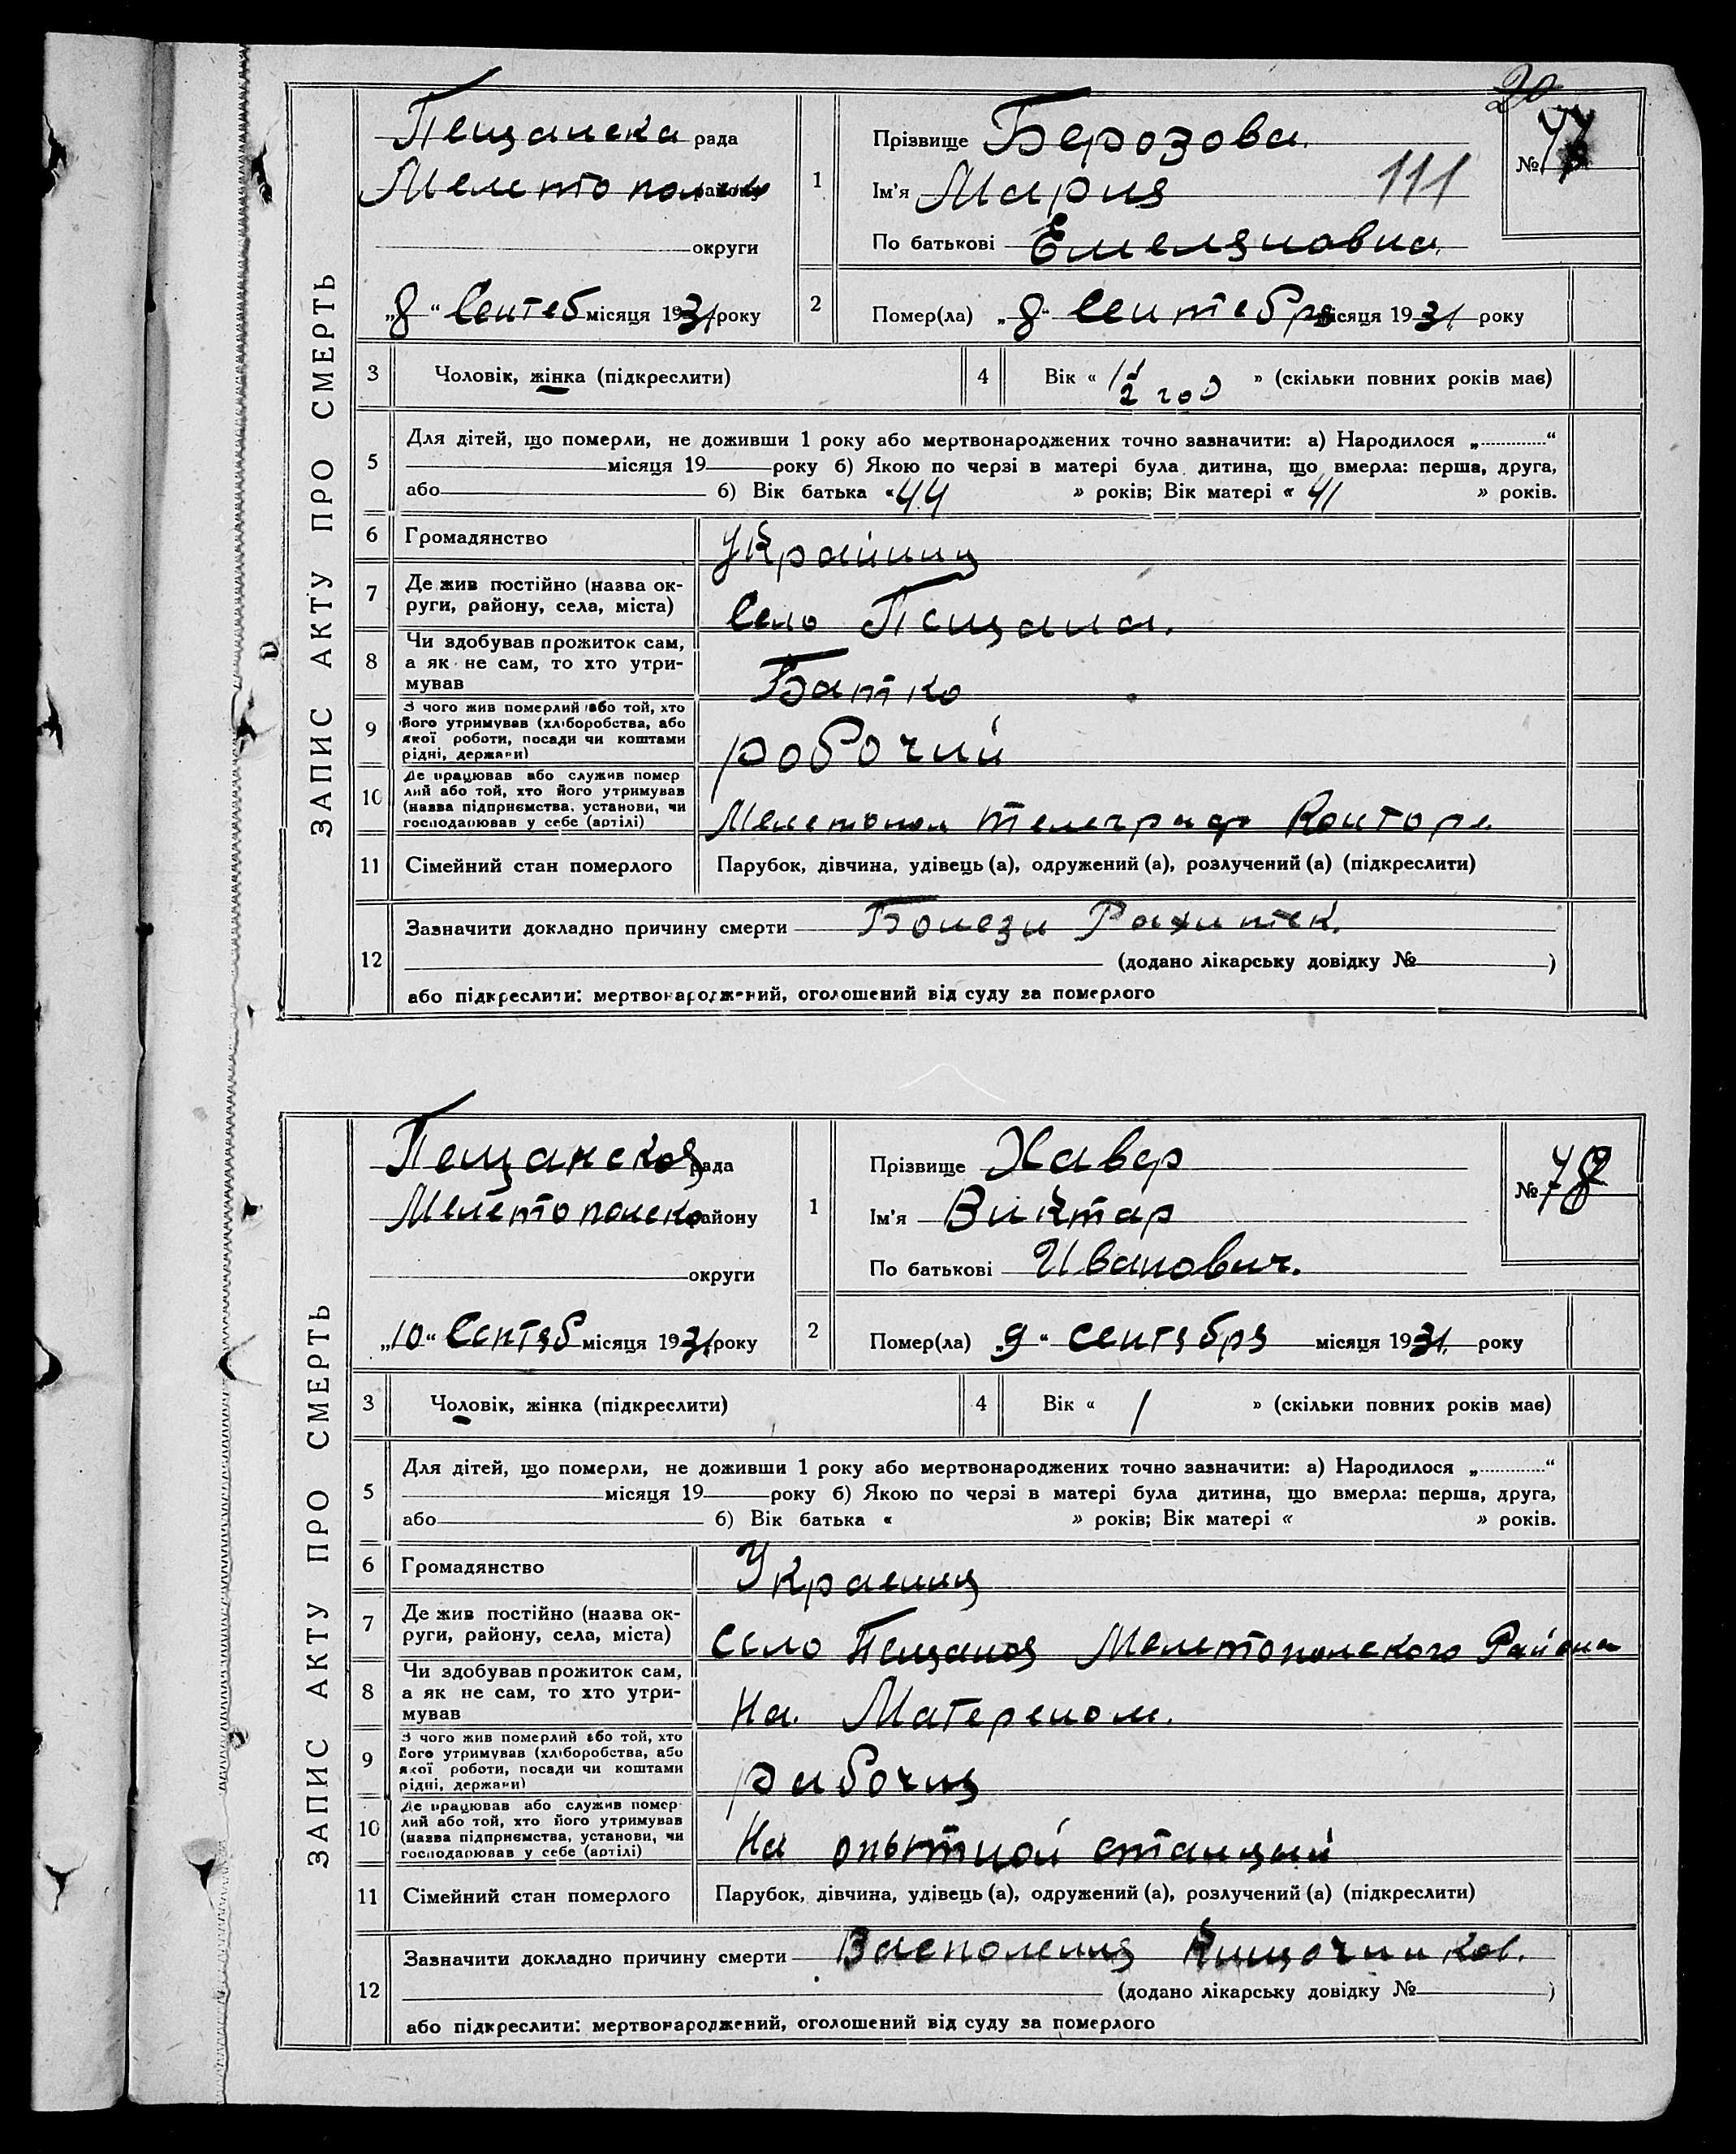 20
ЗАПИС АКТУ ПРО СМЕРТЬ
Пещанска рада
району
округи
„8“ Сентеб місяця 1931 року
1
Прізвище Берозова.
Ім'я Мария 111
По батькові Емеляновна.
№ 77
2
Помер(ла) „8“ Сентебря місяця 1931 року
3
Чоловік, жінка (підкреслити)
4
Вік « 1 1/2 год » (скільки повних років має)
5
Для дітей, що померли, не доживши 1 року або мертвонароджених точно зазначити: а) Народилося „ “
місяця 19 року б) Якою по черзі в матері була дитина, що вмерла: перша, друга,
або б) Вік батька «44 » років; Вік матері « 41 » років.
6
Громадянство
Украйиня
7
Де жив постійно (назва ок-
руги, району, села, міста)
Село Пещана.
8
Чи здобував прожиток сам,
а як не сам, то хто утри-
мував
Батко
9
З чого жив померлий або той, хто
його утримував (хліборобства, або
якої роботи, посади чи коштами
рідні, держави)
робочий
10
Де працював або служив помер
лий або той, хто його утримував
(назва підприємства, установи, чи
господарював у себе (артілі)
Мелетопол телеграф Контора
11
Сімейний стан померлого
Парубок, дівчина, удівець (а), одружений (а), розлучений (а) (підкреслити)
12
Зазначити докладно причину смерти Болези Рахитек.
(додано лікарську довідку № )
або підкреслити: мертвонароджений, оголошений від суду за померлого
ЗАПИС АКТУ ПРО СМЕРТЬ
Пещанская рада
Мелетополско району
округи
„10“ Сентяб місяця 1931 року
1
Прізвище Хавер
Ім'я Виктар
По батькові Иванович.
№ 78
2
Помер(ла) „9“ сентября місяця 1931 року
3
Чоловік, жінка (підкреслити)
4
Вік « 1 » (скільки повних років має)
5
Для дітей, що померли, не доживши 1 року або мертвонароджених точно зазначити: а) Народилося „ “
місяця 19 року б) Якою по черзі в матері була дитина, що вмерла: перша, друга,
або б) Вік батька « » років; Вік матері « » років.
6
Громадянство
Украения
7
Де жив постійно (назва ок-
руги, району, села, міста)
Село Пещаная Мелетополского Района
8
Чи здобував прожиток сам,
а як не сам, то хто утри-
мував
На. Матереном.
9
З чого жив померлий або той, хто
його утримував (хліборобства, або
якої роботи, посади чи коштами
рідні, держави)
рабочия
10
Де працював або служив помер-
лий або той, хто його утримував
(назва підприємства, установи, чи
господарював у себе (артілі)
На опытной станцыи
11
Сімейний стан померлого
Парубок, дівчина, удівець (а), одружений (а), розлучений (а) (підкреслити)
12
Зазначити докладно причину смерти Васполения
(додано лікарську довідку № )
або підкреслити: мертвонароджений, оголошений від суду за померлого